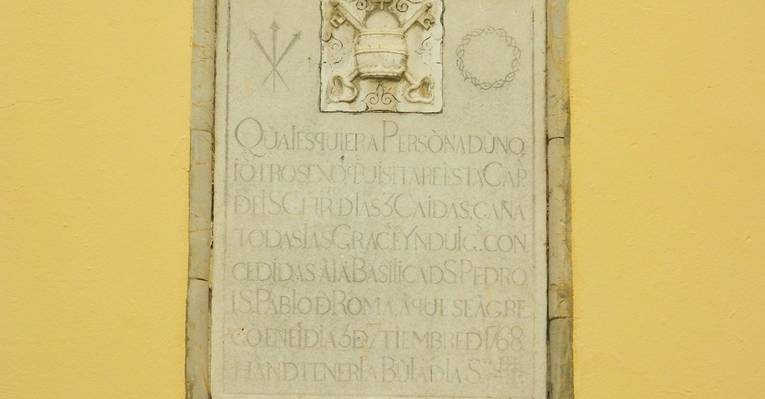 QUALESQUIERA PERSONA D UNO
I OTRO SEXO Q̃ UISITARE ESTA CAP
DEL S CHR. D LAS 3 CAIDAS, GANA
TODAS LAS GRAC.S E YNDULG.S CON
CEDIDAS À LA BASILICA D S PEDRO
I S. PABLO D ROMA, À QUE SE AGRE
GO EN EL DIA 3 D 7TIEMBRE D 1768
HAN D TENER LA BULA D LA S